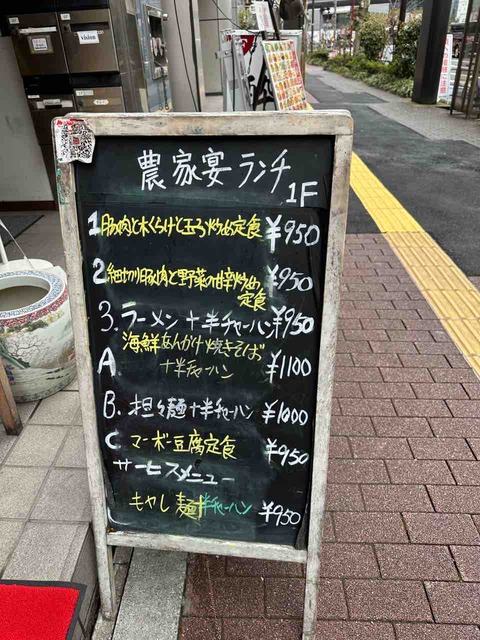 vision
農家宴ランチ
1F
1 豚肉と木くらげと玉子炒め定食 ¥950
2 細切り豚肉と野菜の甘辛炒め
定食 ¥950
3. ラーメン+半チャーハン ¥950
A 海鮮あんかけ焼きそば
+半チャーハン ¥1100
B. 担々麺+半チャーハン ¥1000
C マーボー豆腐定食 ¥950
サービスメニュー
モヤし麺+半チャーハン ¥950